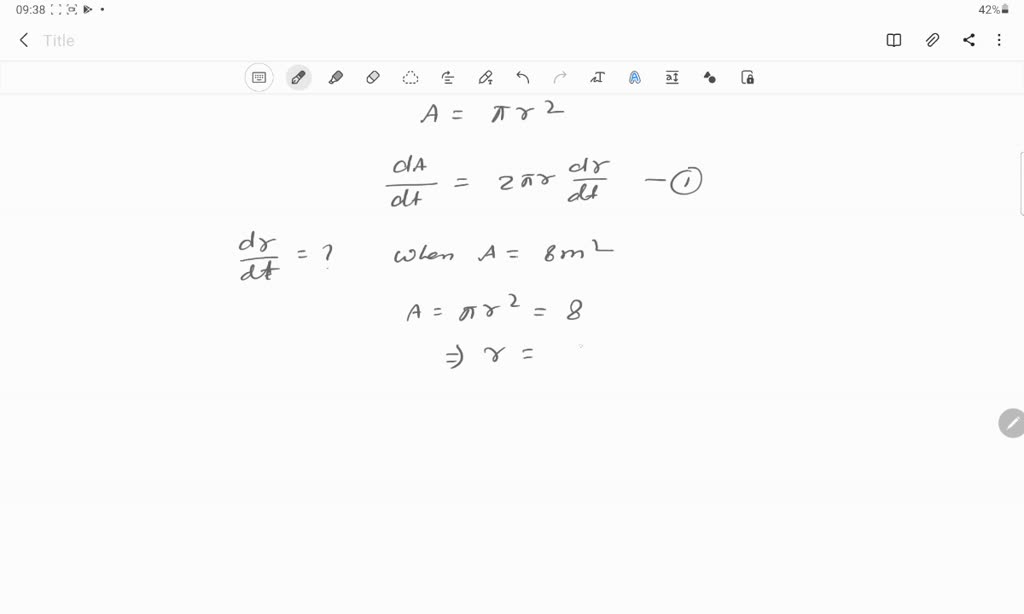 09:38
42%
Title
A = πr²
dA/dt = 2πr dr/dt — ①
dr/dt = ? when A = 8m²
A = πr² = 8
⇒ r =